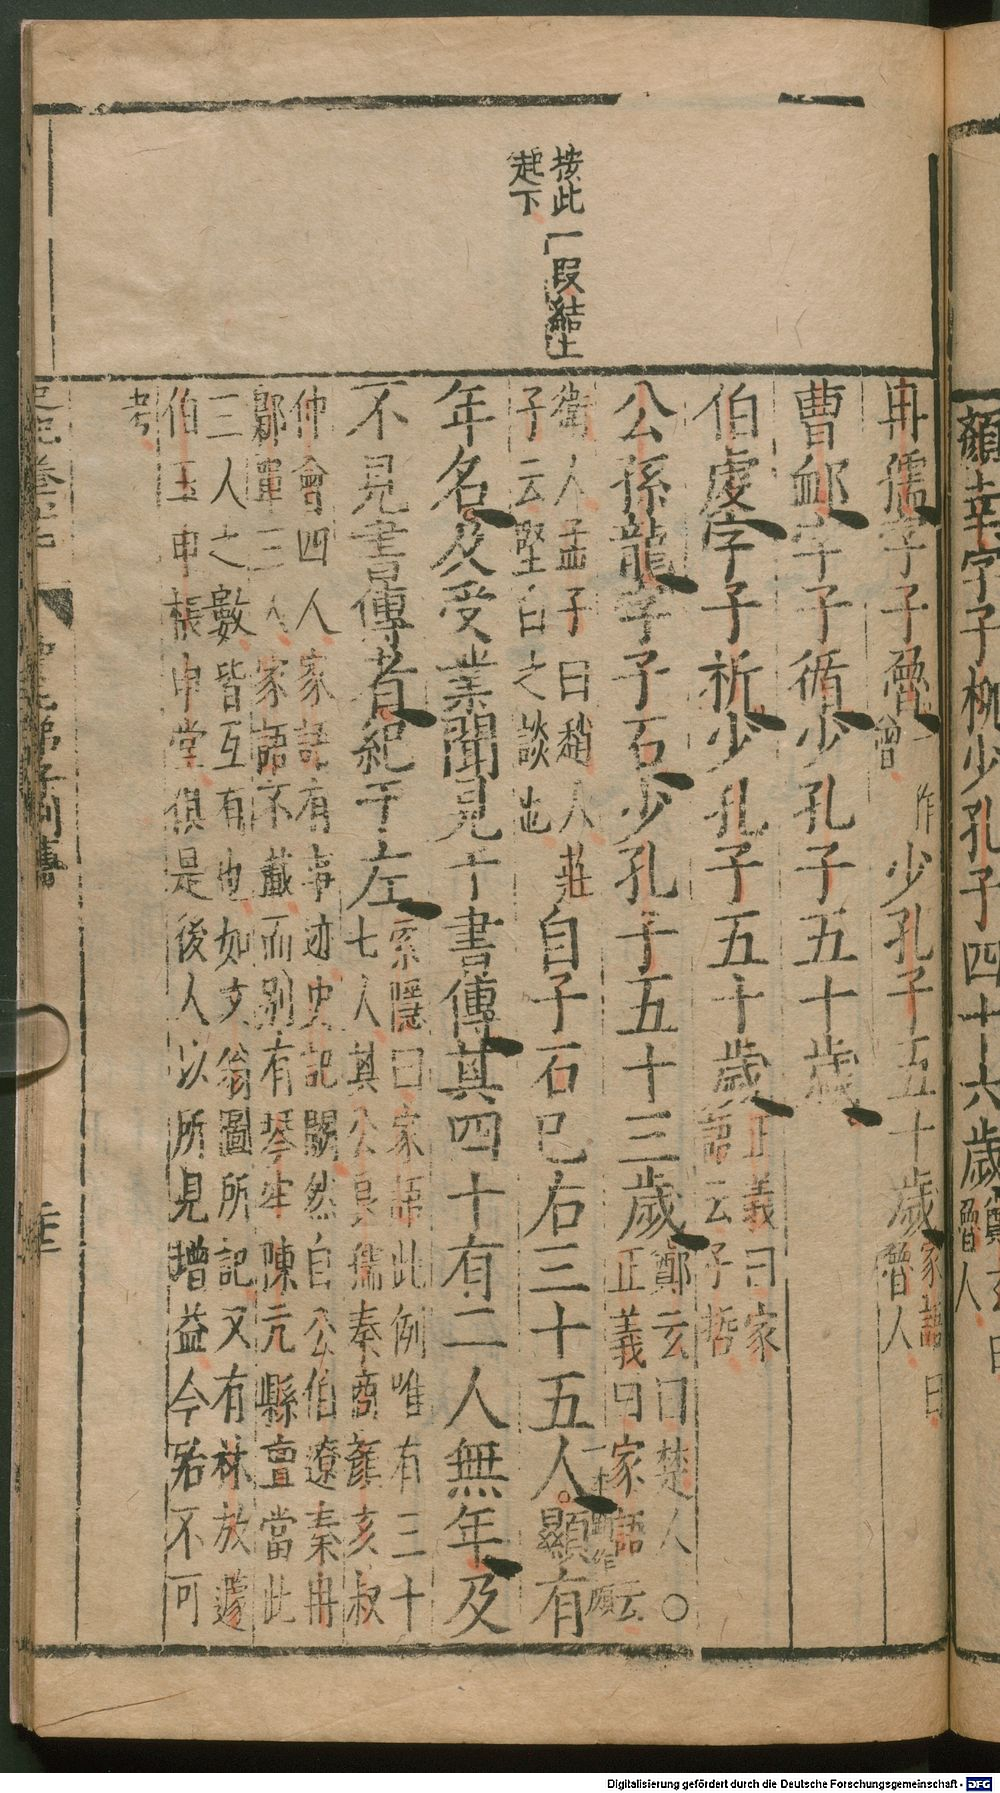 顏幸字子柳少孔子四十六歲鄭玄曰魯人
按此一段結上
起下
冉孺字子魯一作曾少孔子五十歲家語曰魯人
曹卹字子循少孔子五十歲
伯虔字子析少孔子五十歲正義曰家語云子晳
公孫龍字子石少孔子五十三歲鄭玄曰楚人○正義曰家語云
衛人孟子曰趙人莊子云堅白之談也自子石已右三十五人一本作頗顯有
年名及受業聞見于書傳其四十有二人無年及
不見書傳者紀于左索隱曰家語此例唯有三十七人其公良孺秦商顏亥叔
仲會四人家語有事迹史記闕然自公伯遼秦冉鄡單三人家語不載而別有琴牢陳亢縣亶當此
三人之數皆互有也如文翁圖所記又有林放蘧伯玉申棖申堂俱是後人以所見增益今殆不可
考
史記卷六十 仲尼弟子列傳
Digitalisierung gefördert durch die Deutsche Forschungsgemeinschaft - DFG